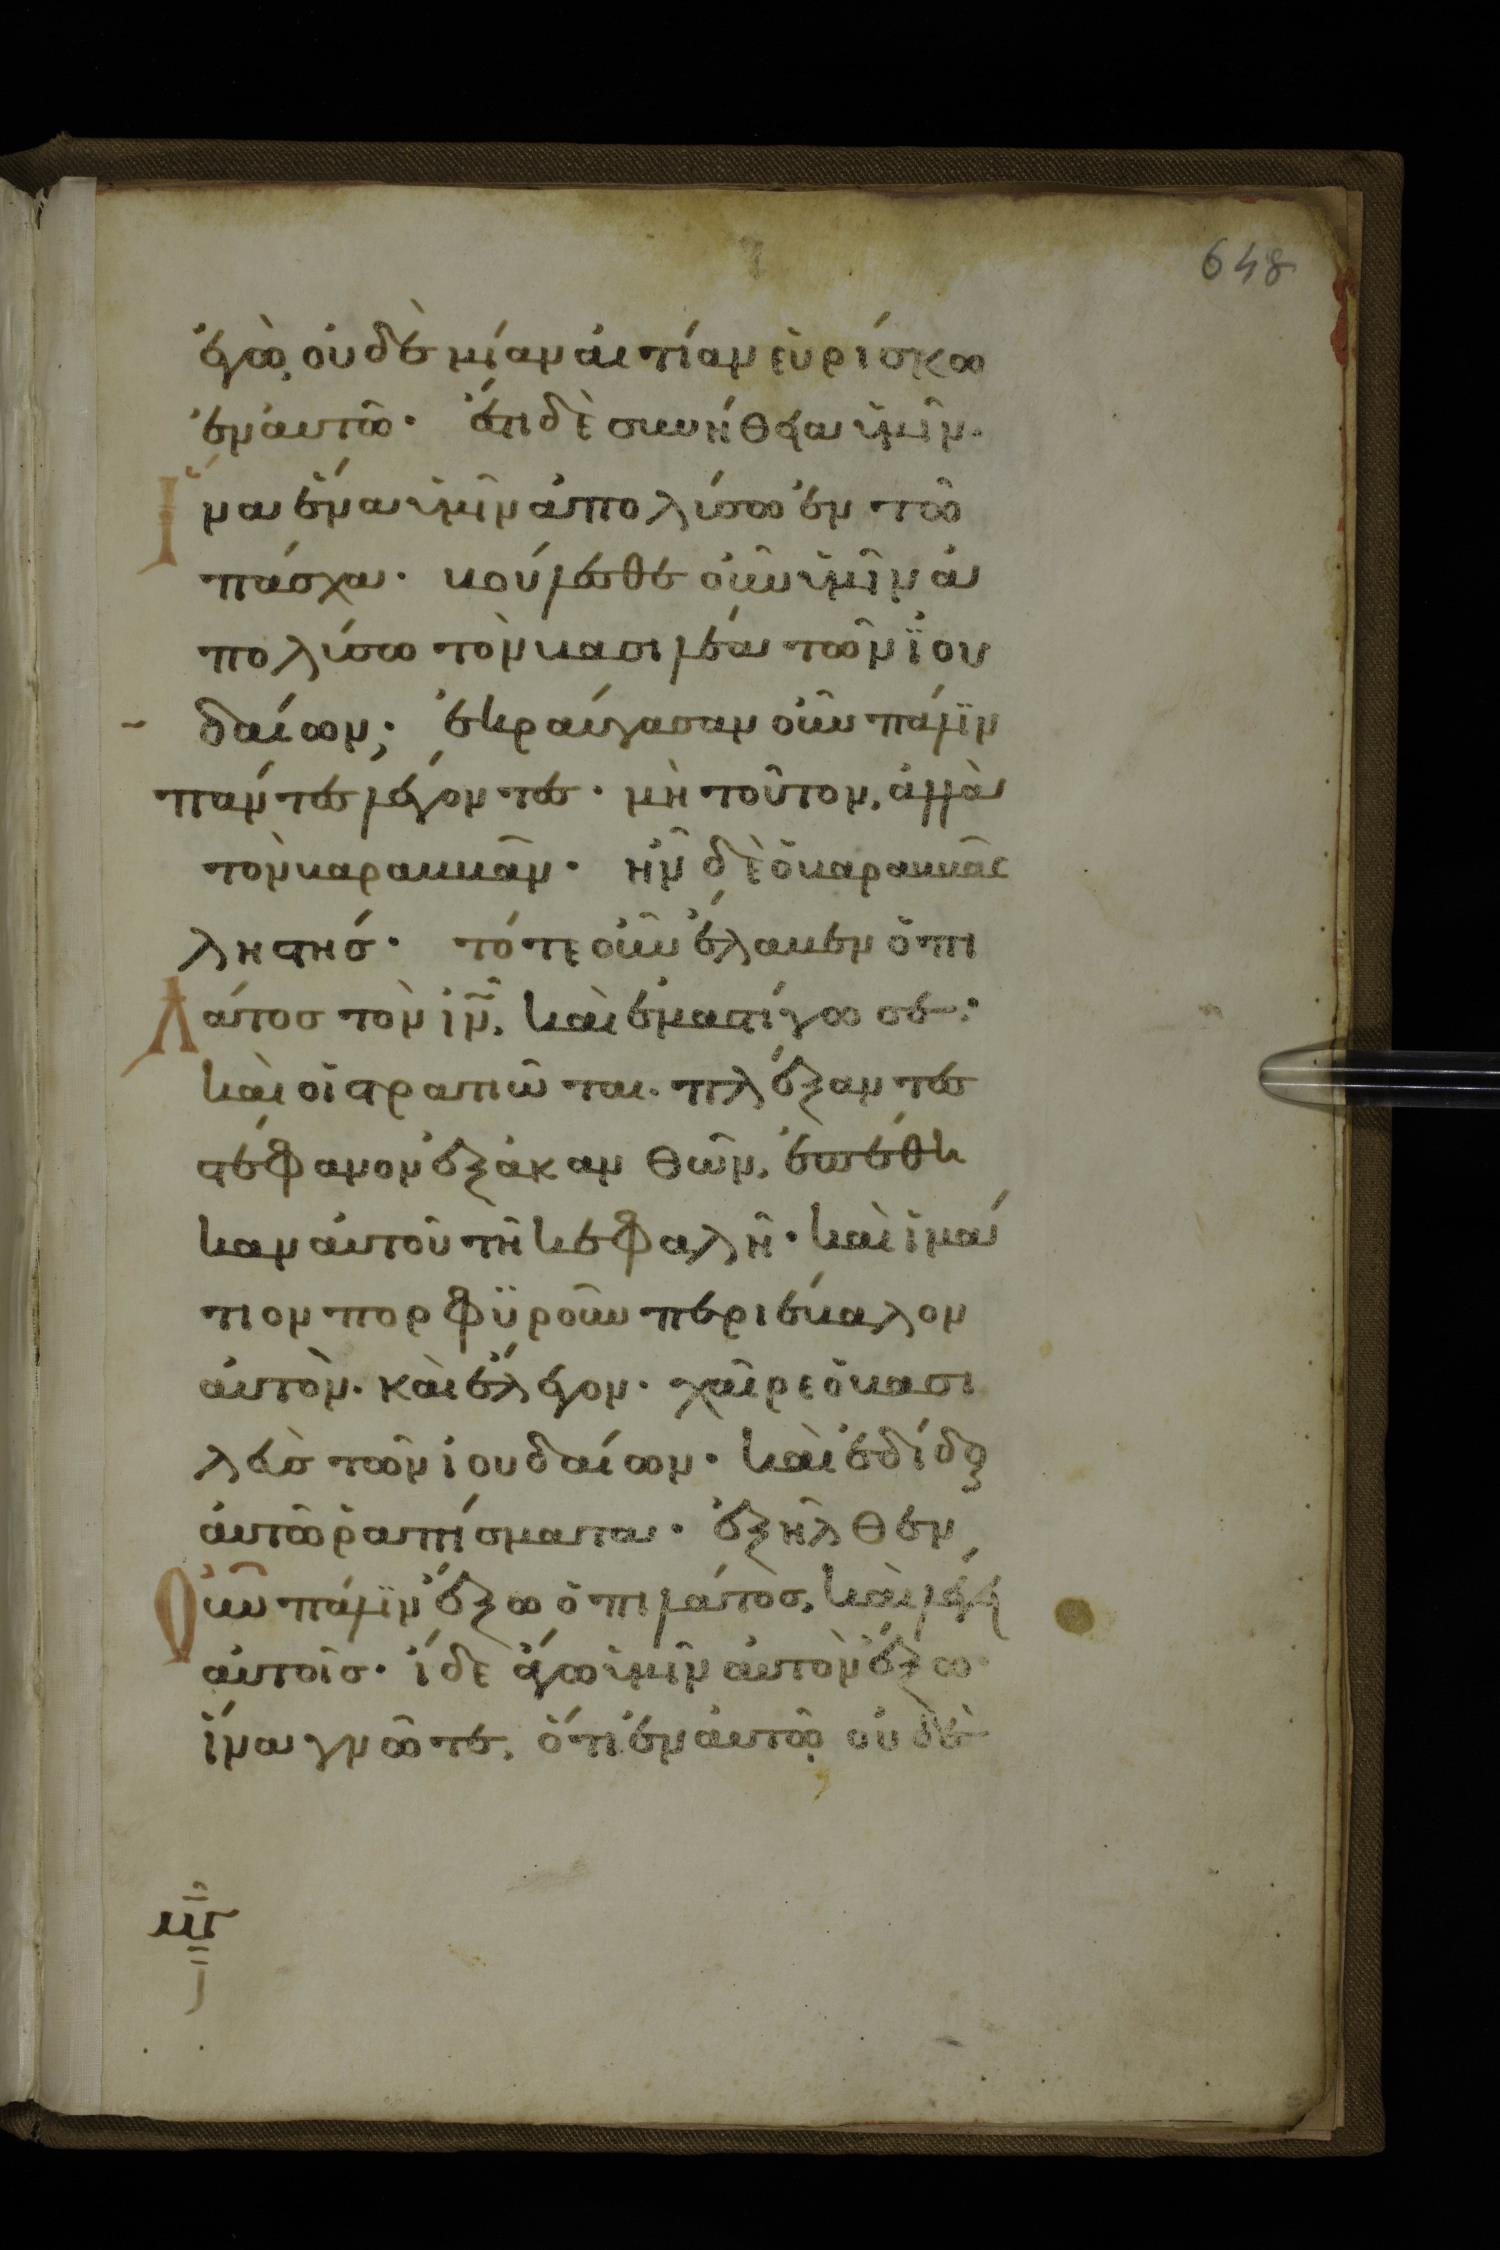 648
ἐγὼ, οὐδεμίαν αἰτίαν εὑρίσκω
ἐν αὐτῶ· ἔστι δὲ συνήθεια ὑμῖν·
ἵνα ἕνα ὑμῖν ἀπολύσω ἐν τῶ
πάσχα· βούλεσθε οὖν ὑμῖν ἀ
πολύσω τὸν βασιλέα τῶν ϊου
δαίων; ἐκραύγασαν οὖν πάλϊν
πάντες λέγοντες· μὴ τοῦτον, ἀλλὰ
τὸν βαραββᾶν· ἦν δὲ ὁ βαραββᾶς
ληστής· τότε οὖν ἔλαβεν ὁ πι
λάτος τὸν ἰν̄, καὶ ἐμαστίγωσε·
καὶ οἱ στρατιῶται· πλέξαντες
στέφανον ἐξ ἀκανθῶν, ἐπέθη
καν αὐτοῦ τῆ κεφαλῆ· καὶ ἱμά
τιον πορφϋροῦν περιέβαλον
αὐτὸν· καὶ ἔλεγον· χαῖρε ὁ βασι
λεὺς τῶν ἰουδαίων· καὶ ἐδίδουν
αὐτῶ ῥαπίσματα· ἐξῆλθεν
οὖν πάλϊν ἔξω ὁ πιλάτος, καὶ λέγει
αὐτοῖς· ἴδε ἄγω ὑμῖν αὐτὸν ἔξω·
ἵνα γνῶτε, ὅτι ἐν αὐτῶ οὐδὲ